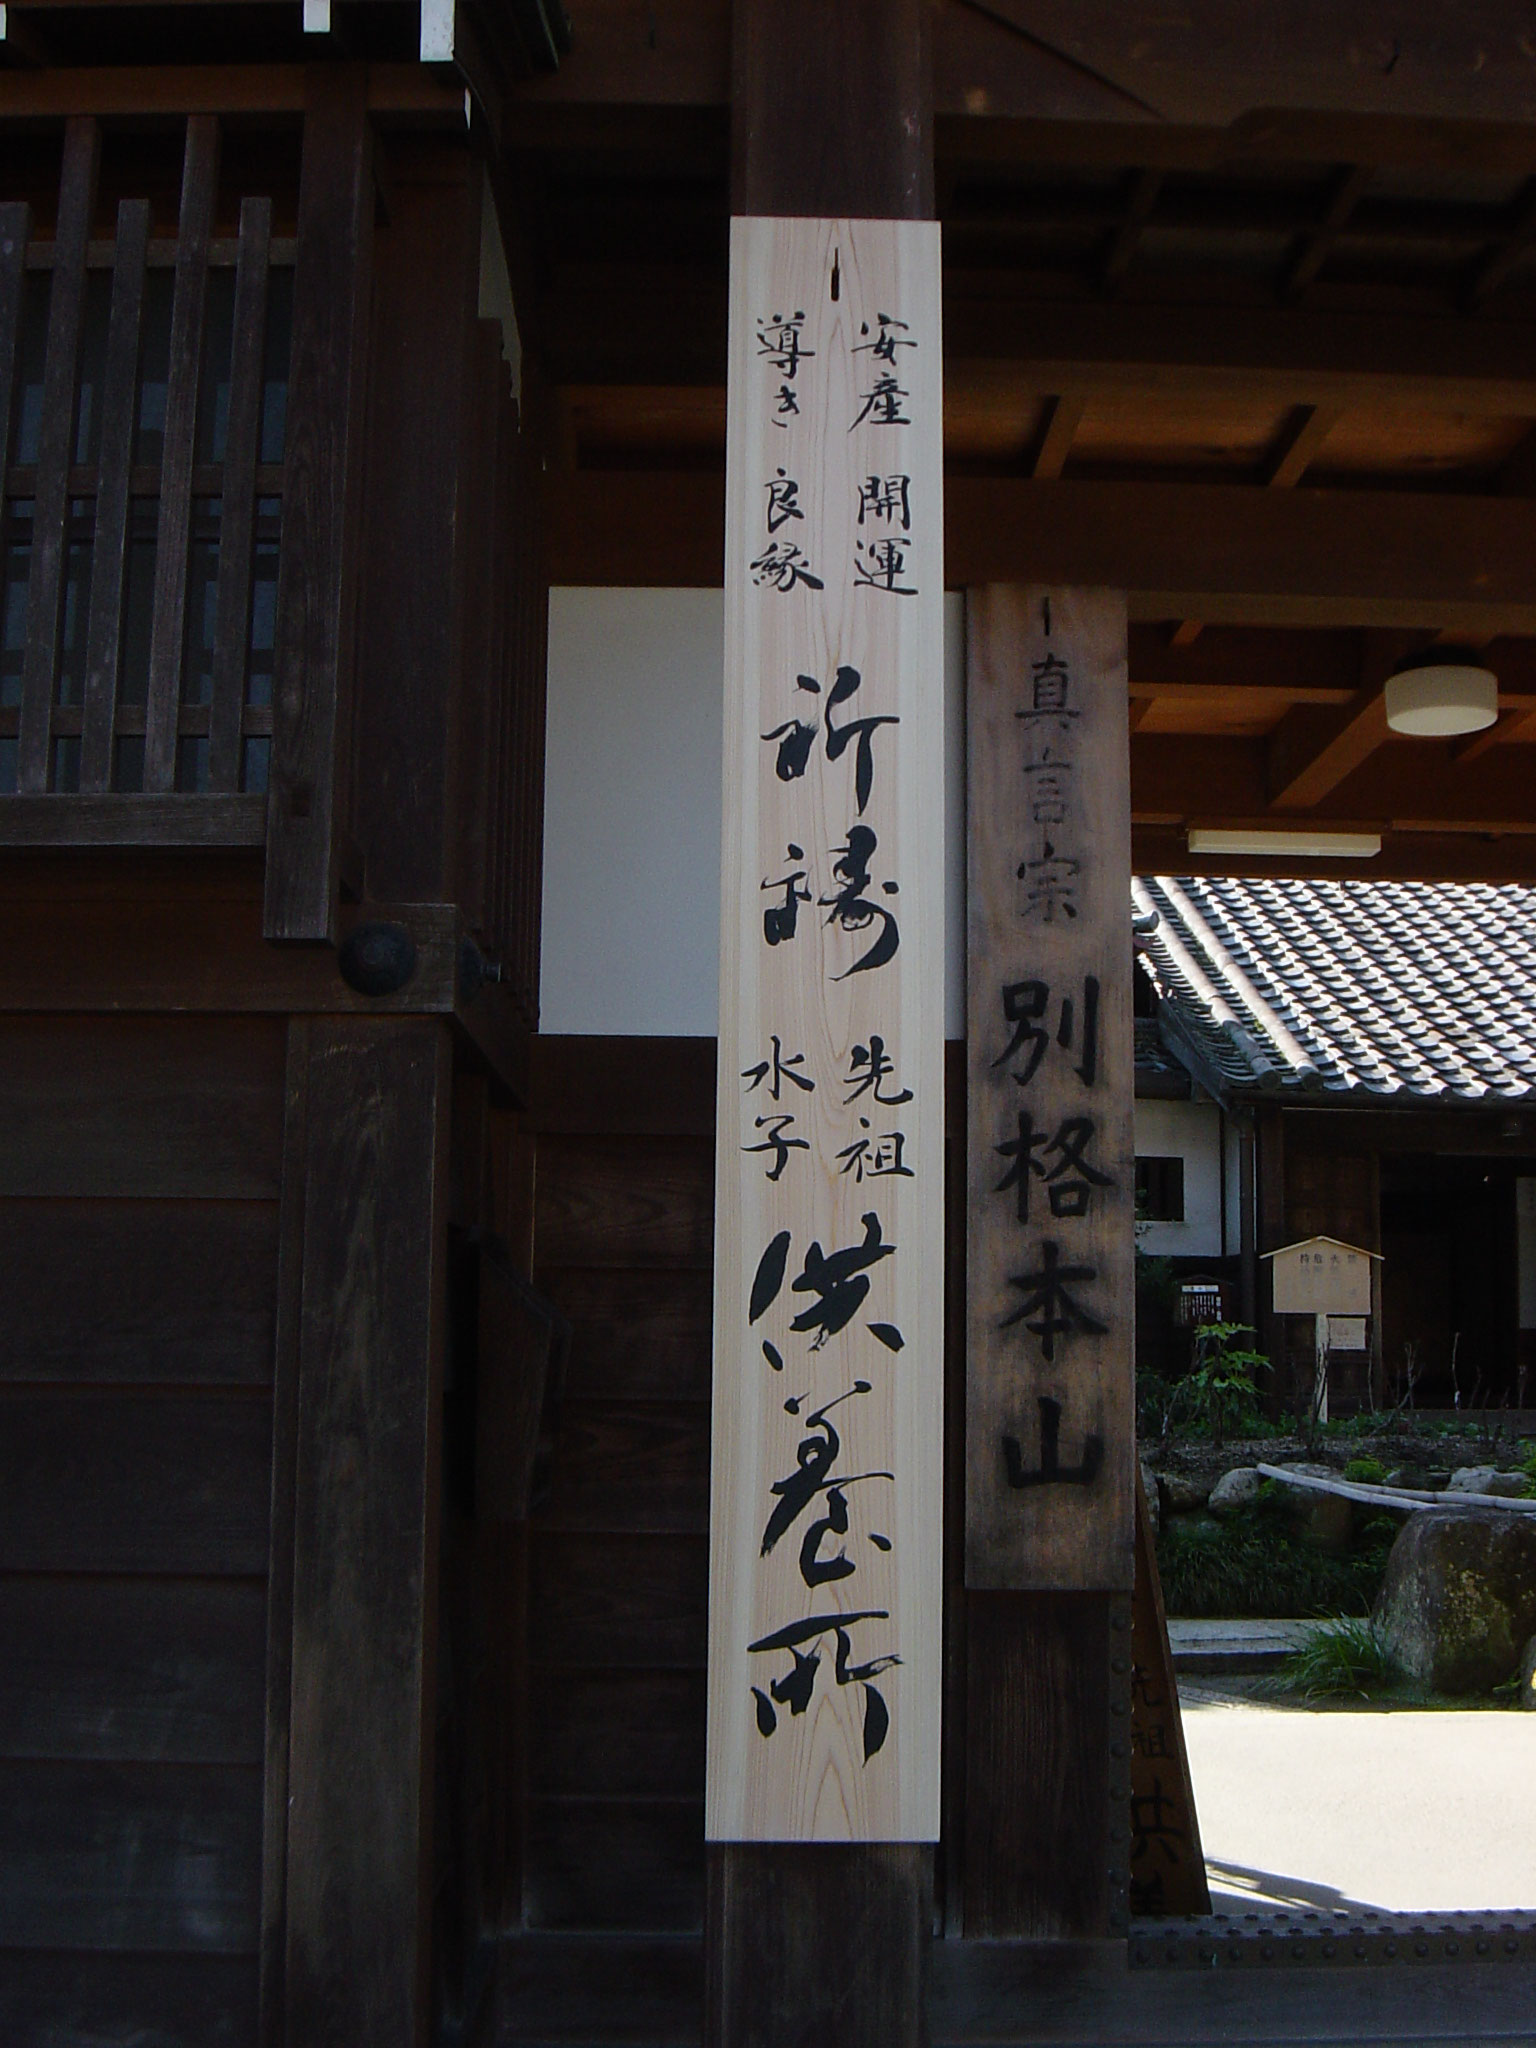 安産 開運
導き 良縁
祈禱
先祖
水子
供養所
真言宗 別格本山
先祖供養